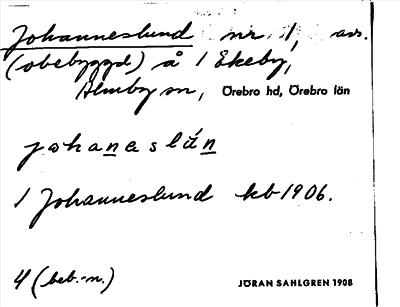 Johanneslund nr 1, avs.
(obebyggd) å 1 Ekeby,
Almby sn, Örebro hd, Örebro län
johaneslún
1 Johanneslund kb 1906.
4 (beb.-n.)
JÖRAN SAHLGREN 1908